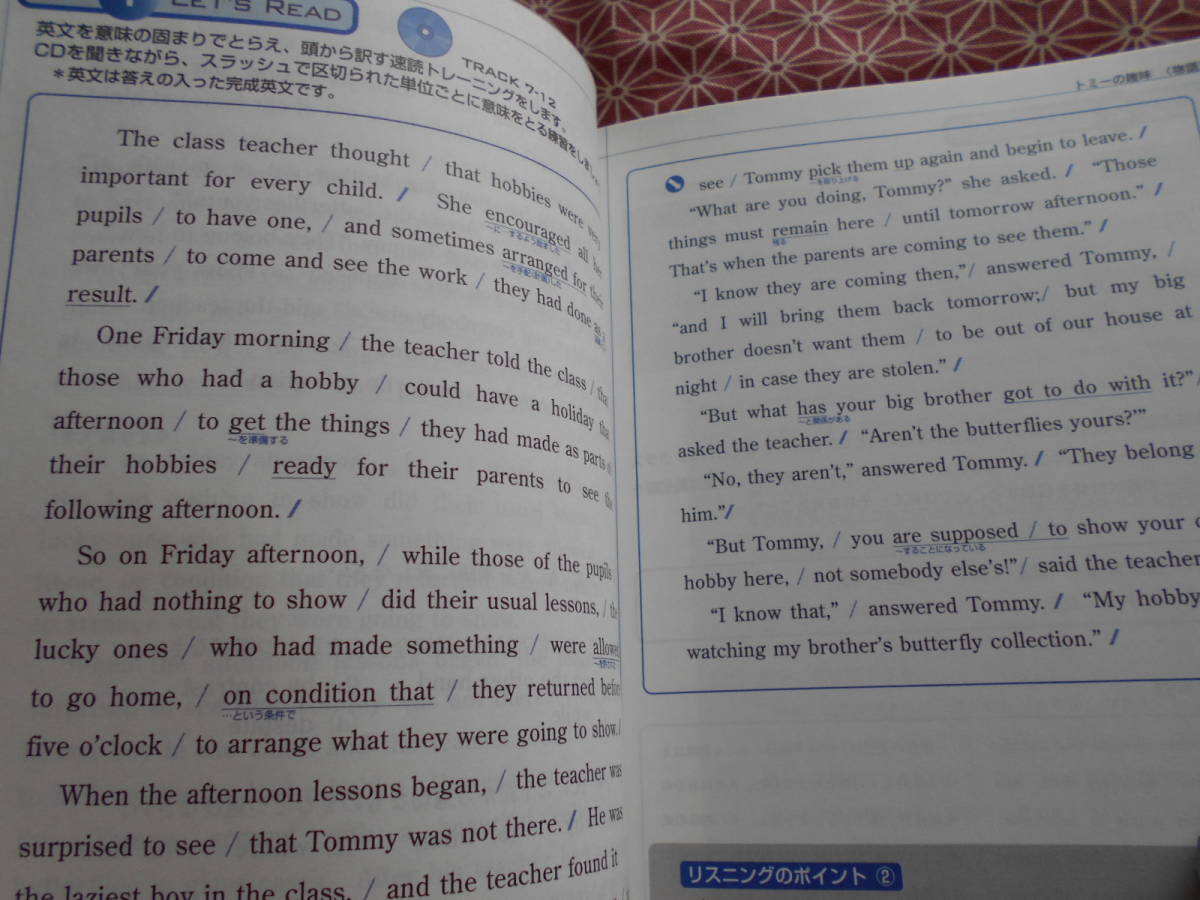 1 LET'S READ
TRACK 7-12
英文を意味の固まりでとらえ、頭から訳す速読トレーニングをします。
CDを聞きながら、スラッシュで区切られた単位ごとに意味をとる練習をしまし
*英文は答えの入った完成英文です。
The class teacher thought / that hobbies were very
important for every child. / She encouraged all her
~に…するよう励ました
pupils / to have one, / and sometimes arranged for their
~を手配(計画)した
parents / to come and see the work / they had done as a
result. /
One Friday morning / the teacher told the class / that
those who had a hobby / could have a holiday that
afternoon / to get the things / they had made as parts of
~を準備する
their hobbies / ready for their parents to see the
following afternoon. /
So on Friday afternoon, / while those of the pupils
who had nothing to show / did their usual lessons, / the
lucky ones / who had made something / were allowed
to go home, / on condition that / they returned before
…という条件で
five o'clock / to arrange what they were going to show. /
When the afternoon lessons began, / the teacher was
surprised to see / that Tommy was not there. / He was
the laziest boy in the class, / and the teacher found it
トミーの趣味 〈物語
see / Tommy pick them up again and begin to leave. /
~を取り上げる
"What are you doing, Tommy?" she asked. / "Those
things must remain here / until tomorrow afternoon." /
残る
That's when the parents are coming to see them." /
"I know they are coming then,"/ answered Tommy, /
"and I will bring them back tomorrow;/ but my big
brother doesn't want them / to be out of our house at
night / in case they are stolen." /
"But what has your big brother got to do with it?"/
~と関係がある
asked the teacher. / "Aren't the butterflies yours?'"
"No, they aren't," answered Tommy. / "They belong
him."/
"But Tommy, / you are supposed / to show your
~することになっている
hobby here, / not somebody else's!"/ said the teacher
"I know that," / answered Tommy. / "My hobby
watching my brother's butterfly collection." /
リスニングのポイント ②